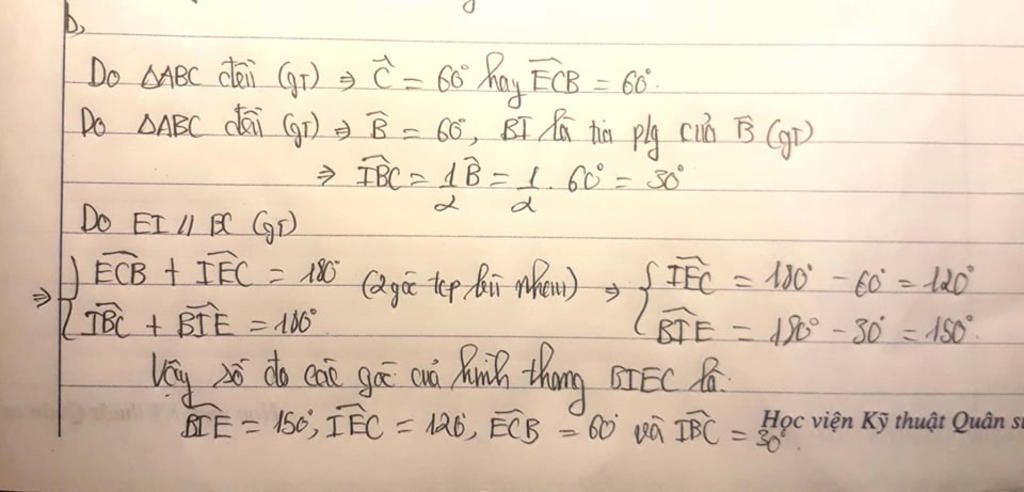 b,
Do ΔABC đều (gt) ⇒ Ĉ = 60° hay ECB = 60°.
Do ΔABC đều (gt) ⇒ B̂ = 60°, BI là tia plg của B̂ (gt)
⇒ IBC = 1/2 B̂ = 1/2 . 60° = 30°
Do EI // BC (gt)
⇒ { ECB + IEC = 180° (2 góc tcp bù nhau) ⇒ { IEC = 180° - 60° = 120°
IBC + BIE = 180° BIE = 180° - 30° = 150°.
Vậy số đo các góc của hình thang BIEC là:
BIE = 150°, IEC = 120°, ECB = 60° và IBC = 30°
Học viện Kỹ thuật Quân s